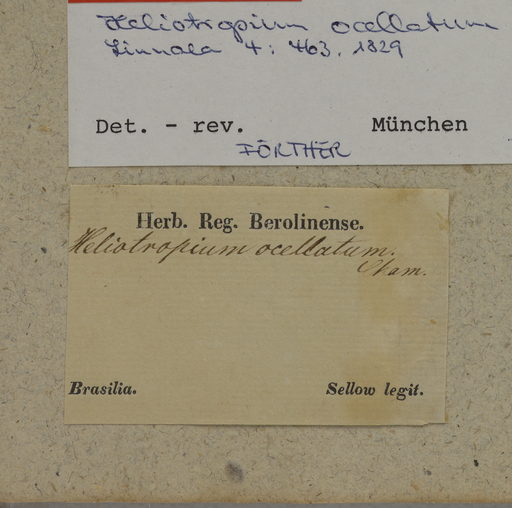 Heliotropium ocellatum
Linnaea 4: 463. 1829
Det. - rev. München
FÖRTHER
Herb. Reg. Berolinense.
Heliotropium ocellatum.
Cham.
Brasilia. Sellow legit.